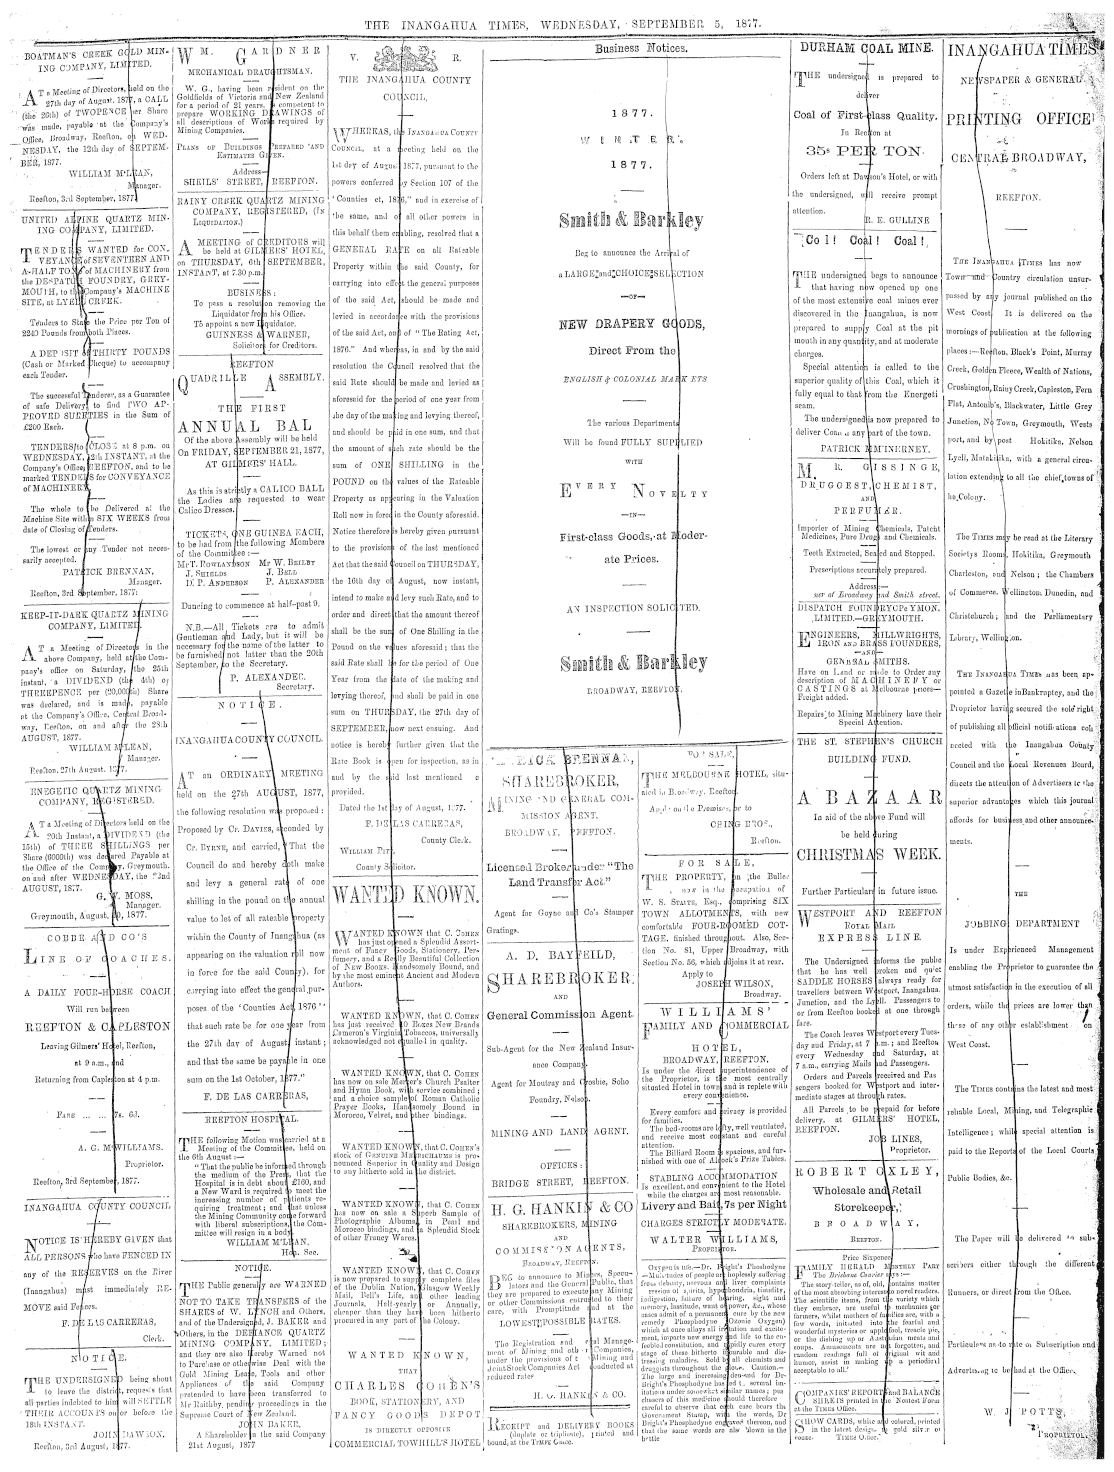 THE INANGAHUA TIMES, WEDNESDAY, SEPTEMBER 5, 1877.
BOATMAN'S CREEK GOLD MIN-
ING COMPANY, LIMITED.
AT a Meeting of Directors, held on the
27th day of August, 1877, a CALL
(the 26th) of TWOPENCE per Share
was made, payable at the Company's
Office, Broadway, Reefton, on WED-
NESDAY, the 12th day of SEPTEM-
BER, 1877.
WILLIAM M'LEAN,
Manager.
Reefton, 3rd September, 1877.
UNITED ALPINE QUARTZ MIN-
ING COMPANY, LIMITED.
TENDERS WANTED for CON-
VEYANCE of SEVENTEEN AND
A-HALF TONS of MACHINERY from
the DESPATCH FOUNDRY, GREY-
MOUTH, to the Company's MACHINE
SITE, at LYELL CREEK.
Tenders to State the Price per Ton of
2240 Pounds from both Places.
A DEPOSIT of THIRTY POUNDS
(Cash or Marked Cheque) to accompany
each Tender.
The successful Tenderer, as a Guarantee
of safe Delivery, to find TWO AP-
PROVED SURETIES in the Sum of
£200 Each.
TENDERS to CLOSE at 8 p.m. on
WEDNESDAY, 12th INSTANT, at the
Company's Office, REEFTON, and to be
marked TENDERS for CONVEYANCE
of MACHINERY.
The whole to be Delivered at the
Machine Site within SIX WEEKS from
date of Closing of Tenders.
The lowest or any Tender not neces-
sarily accepted.
PATRICK BRENNAN,
Manager.
Reefton, 3rd September, 1877:
KEEP-IT-DARK QUARTZ MINING
COMPANY, LIMITED.
AT a Meeting of Directors in the
above Company, held at the Com-
pany's office on Saturday, the 25th
instant, a DIVIDEND (the 4th) of
THREEPENCE per (20,000th) Share
was declared, and is made, payable
at the Company's Office, Central Broad-
way, Reefton, on and after the 28th
AUGUST, 1877.
WILLIAM M'LEAN,
Manager.
Reefton, 27th August, 1877.
ENEGETIC QUARTZ MINING
COMPANY, REGISTERED.
AT a Meeting of Directors held on the
20th Instant, a DIVIDEND (the
15th) of THREE SHILLINGS per
Share (6000th) was declared Payable at
the Office of the Company, Greymouth,
on and after WEDNESDAY, the 22nd
AUGUST, 1877.
G. W. MOSS,
Manager.
Greymouth, August, 20, 1877.
COBBE AND CO'S
LINE OF COACHES.
A DAILY FOUR-HORSE COACH
Will run between
REEFTON & CAPLESTON
Leaving Gilmers' Hotel, Reefton,
at 9 a.m., and
Returning from Capleston at 4 p.m.
FARE ... ... 7s. 6d.
A. G. M'WILLIAMS.
Proprietor.
Reefton, 3rd September, 1877.
INANGAHUA COUNTY COUNCIL
NOTICE IS HEREBY GIVEN that
ALL PERSONS who have FENCED IN
any of the RESERVES on the River
(Inangahua) must immediately RE-
MOVE said Fences.
F. DE LAS CARRERAS,
Clerk.
NOTICE.
THE UNDERSIGNED being about
to leave the district, requests that
all parties indebted to him will SETTLE
THEIR ACCOUNTS on or before the
18th INSTANT.
JOHN DAWSON.
Reefton, 3rd August, 1877
WM. GARDNER
MECHANICAL DRAUGHTSMAN.
W. G., having been resident on the
Goldfields of Victoria and New Zealand
for a period of 21 years, is competent to
prepare WORKING DRAWINGS of
all descriptions of Work required by
Mining Companies.
PLANS OF BUILDINGS PREPARED AND
ESTIMATES GIVEN.
Address—
SHEILS' STREET, REEFTON.
RAINY CREEK QUARTZ MINING
COMPANY, REGISTERED, (IN
LIQUIDATION.)
A MEETING of CREDITORS will
be held at GILMERS' HOTEL,
on THURSDAY, 6th SEPTEMBER,
INSTANT, at 7.30 p.m.
BUSINESS:
To pass a resolution removing the
Liquidator from his Office.
To appoint a new Liquidator.
GUINNESS & WARNER,
Solicitors for Creditors.
REEFTON
QUADRILLE ASSEMBLY.
THE FIRST
ANNUAL BAL
Of the above Assembly will be held
On FRIDAY, SEPTEMBER 21, 1877,
AT GILMERS' HALL.
As this is strictly a CALICO BALL
the Ladies are requested to wear
Calico Dresses.
TICKETS, ONE GUINEA EACH,
to be had from the following Members
of the Committee:—
Mr T. ROWLANDSON Mr W. BEILBY
J. SHIELDS J. BELL
D. P. ANDERSON P. ALEXANDER
Dancing to commence at half-past 9.
N.B.—All Tickets are to admit
Gentleman and Lady, but it will be
necessary for the name of the latter to
be furnished not later than the 20th
September, to the Secretary.
P. ALEXANDER.
Secretary.
NOTICE.
INANGAHUA COUNTY COUNCIL.
AT an ORDINARY MEETING
held on the 27th AUGUST, 1877,
the following resolution was proposed:
Proposed by Cr. DAVIES, seconded by
Cr. BYRNE, and carried, "That the
Council do and hereby doth make
and levy a general rate of one
shilling in the pound on the annual
value to let of all rateable property
within the County of Inangahua (as
appearing on the valuation roll now
in force for the said County), for
carrying into effect the general pur-
poses of the 'Counties Act, 1876'
that such rate be for one year from
the 27th day of August instant;
and that the same be payable in one
sum on the 1st October, 1877."
F. DE LAS CARRERAS,
REEFTON HOSPITAL.
THE following Motion was carried at a
Meeting of the Committee, held on
the 6th August:—
"That the public be informed through
the medium of the Press, that the
Hospital is in debt about £160, and
a New Ward is required to meet the
increasing number of patients re-
quiring treatment; and that unless
the Mining Community come forward
with liberal subscriptions, the Com-
mittee will resign in a body.
WILLIAM M'LEAN,
Hon. Sec.
NOTICE.
THE Public generally are WARNED
NOT TO TAKE TRANSFERS of the
SHARES of W. LYNCH and Others,
and of the Undersigned, J. BAKER and
Others, in the DEFIANCE QUARTZ
MINING COMPANY, LIMITED;
and they are also Hereby Warned not
to Purchase or otherwise Deal with the
Gold Mining Lease, Tools and other
Appliances of the said Company
pretended to have been transferred to
Mr Raithby, pending proceedings in the
Supreme Court of New Zealand.
JOHN BAKER,
A Shareholder in the said Company
21st August, 1877
V. R.
THE INANGAHUA COUNTY
COUNCIL,
WHEREAS, the INANGAHUA COUNTY
COUNCIL, at a meeting held on the
1st day of August 1877, pursuant to the
powers conferred by Section 107 of the
'Counties ct, 1876," and in exercise of
the same, and of all other powers in
this behalf them enabling, resolved that a
GENERAL RATE on all Rateable
Property within the said County, for
carrying into effect the general purposes
of the said Act, should be made and
levied in accordance with the provisions
of the said Act, and of "The Rating Act,
1876." And whereas, in and by the said
resolution the Council resolved that the
said Rate should be made and levied as
aforesaid for the period of one year from
the day of the making and levying thereof,
and should be paid in one sum, and that
the amount of such rate should be the
sum of ONE SHILLING in the
POUND on the values of the Rateable
Property as appearing in the Valuation
Roll now in force in the County aforesaid.
Notice therefore is hereby given pursuant
to the provisions of the last mentioned
Act that the said Council on THURSDAY,
the 16th day of August, now instant,
intend to make and levy such Rate, and to
order and direct that the amount thereof
shall be the sum of One Shilling in the
Pound on the values aforesaid; that the
said Rate shall be for the period of One
Year from the date of the making and
levying thereof, and shall be paid in one
sum on THURSDAY, the 27th day of
SEPTEMBER, now next ensuing. And
notice is hereby further given that the
Rate Book is open for inspection, as in
and by the said last mentioned
provided.
Dated the 1st day of August, 1877.
F. DE LAS CARRERAS,
County Clerk.
WILLIAM PITT,
County Solicitor.
WANTED KNOWN.
WANTED KNOWN that C. COHEN
has just opened a Splendid Assort-
ment of Fancy Goods, Stationery, Per-
fumery, and a Really Beautiful Collection
of New Books. Handsomely Bound, and
by the most eminent Ancient and Modern
Authors.
WANTED KNOWN, that C. COHEN
has just received 10 Boxes New Brands
Cameron's Virginia Tobaccos, universally
acknowledged not equalled in quality.
WANTED KNOWN, that C. COHEN
has now on sale Mercer's Church Psalter
and Hymn Book, with service combined;
and a choice sample of Roman Catholic
Prayer Books, Handsomely Bound in
Morocco, Velvet, and other bindings.
WANTED KNOWN, that C. COHEN'S
stock of GENUINE MEERSCHAUMS is pro-
nounced Superior in Quality and Design
to any hitherto sold in the district.
WANTED KNOWN, that C. COHEN
has now on sale a Superb Sample of
Photographic Albums, in Pearl and
Morocco bindings, and a Splendid Stock
of other Francy Wares.
WANTED KNOWN, that C. COHEN
is now prepared to supply complete files
of the Dublin Nation, Glasgow Weekly
Mail, Bell's Life, and other leading
Journals, Half-yearly or Annually,
cheaper than they have been hitherto
procured in any part of the Colony.
WANTED KNOWN,
THAT
CHARLES COHEN'S
BOOK, STATIONERY, AND
FANCY GOODS DEPOT
IS DIRECTLY OPPOSITE
COMMERCIAL TOWHILL'S HOTEL
Business Notices.
1877.
WINTER.
1877.
Smith & Barkley
Beg to announce the Arrival of
a LARGE and CHOICE SELECTION
—OF—
NEW DRAPERY GOODS,
Direct From the
ENGLISH & COLONIAL MARKETS
The various Departments
Will be found FULLY SUPPLIED
WITH
EVERY NOVELTY
—IN—
First-class Goods, at Moder-
ate Prices.
AN INSPECTION SOLICITED.
Smith & Barkley
BROADWAY, REEFTON.
BRENNAN,
SHAREBROKER,
MINING AND GENERAL COM-
MISSION AGENT.
BROADWAY, REEFTON.
Licensed Broker under "The
Land Transfer Act."
Agent for Goyne and Co's Stamper
Gratings.
A. D. BAYFEILD,
SHAREBROKER,
AND
General Commission Agent.
Sub-Agent for the New Zealand Insur-
ance Company.
Agent for Moutray and Crosbie, Soho
Foundry, Nelson.
MINING AND LAND AGENT.
OFFICES:
BRIDGE STREET, REEFTON.
H. G. HANKIN & CO
SHAREBROKERS, MINING
AND
COMMISSION AGENTS,
BROADWAY, REEFTON.
BEG to announce to Miners, Specu-
lators and the General Public, that
they are prepared to execute any Mining
or other Commissions entrusted to their
care, with Promptitude and at the
LOWEST POSSIBLE RATES.
The Registration and Manage-
ment of Mining and other Companies,
under the provisions of the Mining and
Joint Stock Companies Act conducted at
reduced rates
H. G. HANKIN & CO.
RECEIPT and DELIVERY BOOKS
(duplate or triplicate), printed and
bound, at the TIMES OFFICE.
FOR SALE,
THE MELBOURNE HOTEL, situ-
ated in Broadway, Reefton.
Apply on the Premises, or to
CHING BROS.,
Reefton.
FOR SALE,
THE PROPERTY, on the Buller
now in the occupation of
W. S. STAITE, Esq., comprising SIX
TOWN ALLOTMENTS, with new
comfortable FOUR-ROOMED COT-
TAGE, finished throughout. Also, Sec-
tion No. 81, Upper Broadway, with
Section No. 56, which adjoins it at rear.
Apply to
JOSEPH WILSON,
Broadway.
WILLIAMS'
FAMILY AND COMMERCIAL
HOTEL,
BROADWAY, REEFTON.
Is under the direct superintendence of
the Proprietor, is the most centrally
situated Hotel in town and is replete with
every convenience.
Every comfort and privacy is provided
for families.
The bed-rooms are lofty, well ventilated,
and receive most constant and careful
attention.
The Billiard Room is spacious, and fur-
nished with one of Alcock's Prize Tables.
STABLING ACCOMMODATION
Is excellent, and convenient to the Hotel
while the charges are most reasonable.
Livery and Bait, 7s per Night
CHARGES STRICTLY MODERATE.
WALTER WILLIAMS,
PROPRIETOR.
Oxygen is life.—Dr. Bright's Phosphodyne
—Multitudes of people are hopelessly suffering
from debility, nervous and liver complaints
DURHAM COAL MINE.
THE undersigned is prepared to
deliver
Coal of First-class Quality.
In Reefton at
35s PER TON.
Orders left at Dawson's Hotel, or with
the undersigned, will receive prompt
attention.
R. E. GULLINE
Co l! Coal! Coal!
THE undersigned begs to announce
that having now opened up one
of the most extensive coal mines ever
discovered in the Inangahua, is now
prepared to supply Coal at the pit
mouth in any quantity, and at moderate
charges.
Special attention is called to the
superior quality of this Coal, which it
fully equal to that from the Energeti
seam.
The undersigned is now prepared to
deliver Coal at any part of the town.
PATRICK M'INERNEY.
M. R. GISSINGE,
DRUGGEST, CHEMIST,
AND
PERFUMER.
Importer of Mining Chemicals, Patent
Medicines, Pure Drugs and Chemicals.
Teeth Extracted, Scaled and Stopped.
Prescriptions accurately prepared.
Address:—
ner of Broadway and Smith street.
DISPATCH FOUNDRY COMPANY.
LIMITED.—GREYMOUTH.
ENGINEERS, MILLWRIGHTS,
IRON AND BRASS FOUNDERS,
—AND—
GENERAL SMITHS.
Have on Land or made to Order any
description of MACHINERY or
CASTINGS at Melbourne prices—
Freight added.
Repairs to Mining Machinery have their
Special Attention.
THE ST. STEPHEN'S CHURCH
BUILDING FUND.
A BAZAAR
In aid of the above Fund will
be held during
CHRISTMAS WEEK.
Further Particulars in future issue.
WESTPORT AND REEFTON
ROYAL MAIL
EXPRESS LINE.
The Undersigned informs the public
that he has well broken and quiet
SADDLE HORSES always ready for
travellers between Westport, Inangahua.
Junction, and the Lyell. Passengers to
or from Reefton booked at one through
fare.
The Coach leaves Westport every Tues-
day and Friday, at 7 a.m.; and Reefton
every Wednesday and Saturday, at
7 a.m., carrying Mails and Passengers.
Orders and Parcels received and Pas
sengers booked for Westport and inter-
mediate stages at through rates.
All Parcels to be prepaid for before
delivery, at GILMERS' HOTEL,
REEFTON.
JOB LINES,
Proprietor.
ROBERT OXLEY,
Wholesale and Retail
Storekeeper,
BROADWAY,
REEFTON.
Price Sixpence
FAMILY HERALD MONTHLY PART
The Brisbane Courier says:—
COMPANIES' REPORTS and BALANCE
SHEETS printed in the Neatest Form
at the TIMES Office.
SHOW CARDS, white and colored, printed
in the latest design, in gold silver or
TIMES Office.
INANGAHUA TIMES
NEWSPAPER & GENERAL
PRINTING OFFICE
CENTRAL BROADWAY,
REEFTON.
THE INANGAHUA TIMES has now
Town and Country circulation unsur-
passed by any journal published on the
West Coast. It is delivered on the
mornings of publication at the following
places:—Reefton, Black's Point, Murray
Creek, Golden Fleece, Wealth of Nations,
Crushington, Rainy Creek, Capleston, Fern
Flat, Antonio's, Blackwater, Little Grey
Junction, No Town, Greymouth, West-
port, and by post Hokitika, Nelson
Lyell, Matakitika, with a general circu-
lation extending to all the chief towns of
he Colony.
The TIMES may be read at the Literary
Societys Rooms, Hokitika, Greymouth
Charleston, and Nelson; the Chambers
of Commerce, Wellington, Dunedin, and
Christchurch; and the Parliamentary
Library, Wellington.
THE INANGAHUA TIMES has been ap-
pointed a Gazette in Bankruptcy, and the
Proprietor having secured the sole right
of publishing all official notifications con
nected with the Inangahua County
Council and the Local Revenues Board,
directs the attention of Advertisers to the
superior advantages which this journal
affords for business and other announce-
ments.
THE
JOBBING DEPARTMENT
Is under Experienced Management
enabling the Proprietor to guarantee the
utmost satisfaction in the execution of all
orders, while the prices are lower than
those of any other establishment on
West Coast.
The TIMES contains the latest and most
reliable Local, Mining, and Telegraphic
Intelligence; while special attention is
paid to the Reports of the Local Courts
Public Bodies, &c.
The Paper will be delivered to sub-
scribers either through the different
Runners, or direct from the Office.
Particulars as to rate of Subscription and
Advertising to be had at the Office.
W. J. POTTS,
PROPRIETOR.